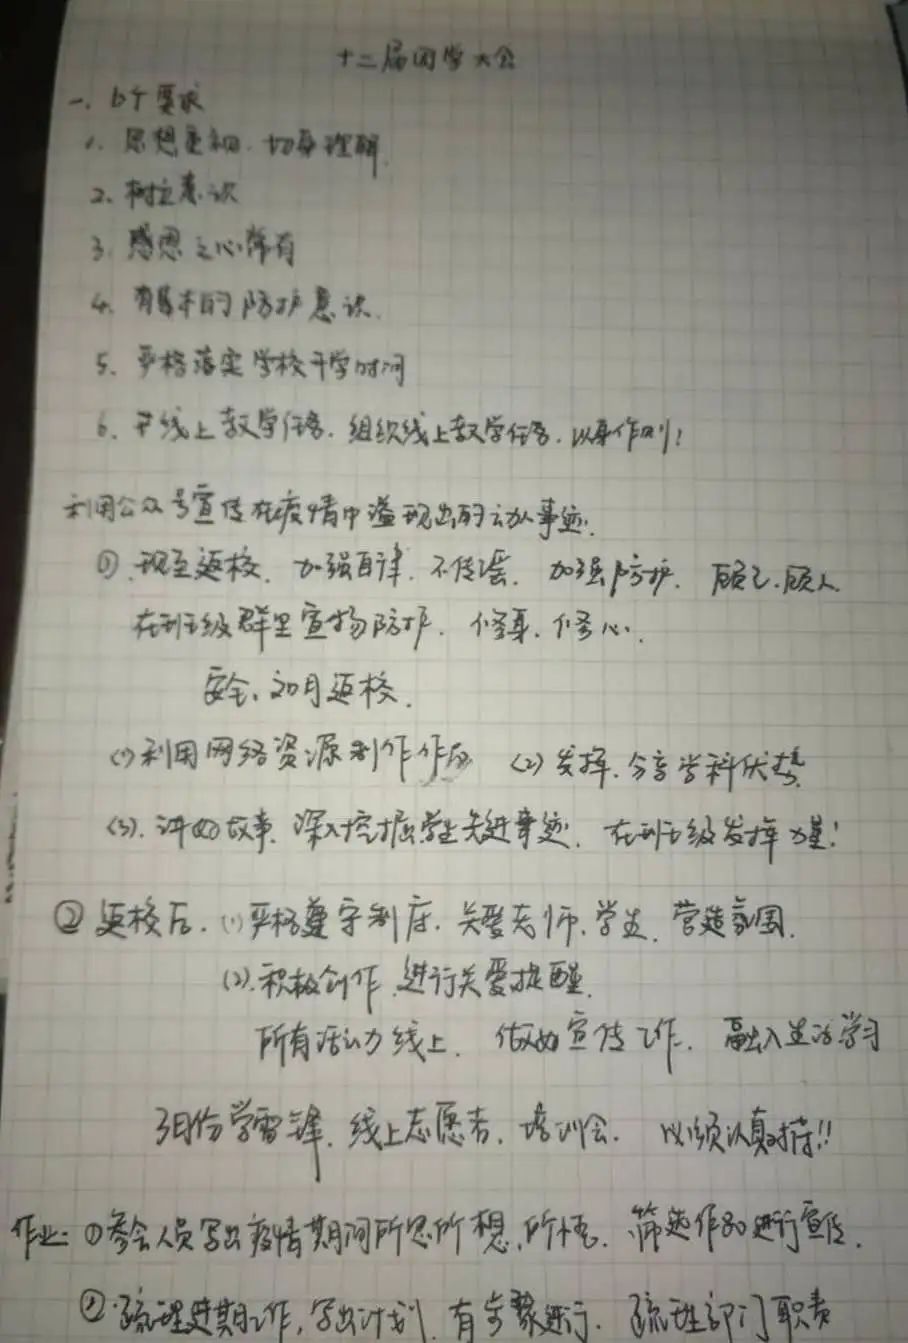 十二届开学大会
一. 6个要求
1. 思想重视. 切身理解.
2. 树立意识
3. 感恩之心常有
4. 有基本的防护意识.
5. 严格落实学校开学时间
6. 线上教学任务. 组织线上教学任务. 以身作则!
利用公众号宣传在疫情中涌现出的动人事迹.
① 现至返校. 加强自律. 不传谣. 加强防护. 顾己.顾人
在班级群里宣扬防护. 修身. 修心.
安全. 如月返校.
(1)利用网络资源制作作品 (2)发挥.分享学科优势
(3). 讲好故事. 深入挖掘学生先进事迹. 在班级发挥力量!
② 返校后. (1)严格遵守制度. 关爱老师.学生. 营造氛围.
(2). 积极创作.进行关爱提醒.
所有活动线上. 做好宣传工作. 融入生活学习
3月份学雷锋. 线上志愿者. 培训会. 必须认真对待!!
作业: ①参会人员写出疫情期间所思所想.所悟. 筛选作品进行宣传.
② 梳理近期工作,写出计划. 有步骤进行. 梳理部门职责